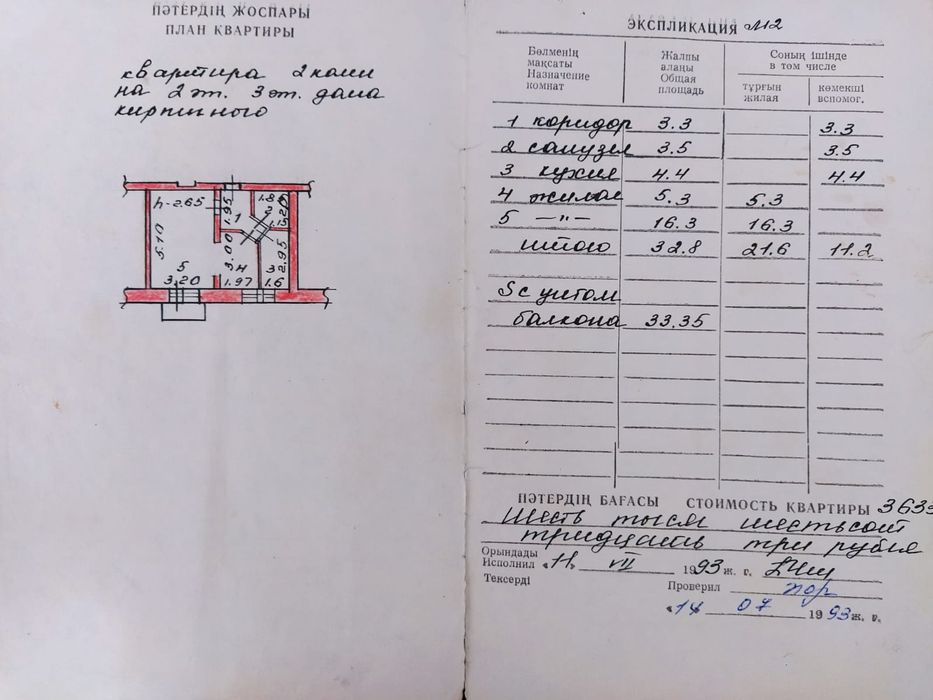 ПӘТЕРДІҢ ЖОСПАРЫ
ПЛАН КВАРТИРЫ
квартира 2 комн
на 2 эт. 3 эт. дома
кирпичного
h-2.65
5.10
5
3.20
1.95
1
3.00
4
1.97
2
1.20
1.15
2.95
3
1.6
ЭКСПЛИКАЦИЯ М2
Бөлменің мақсаты Назначение комнат
Жалпы алаңы Общая площадь
Соның ішінде в том числе
тұрғын жилая
көмекші вспомог.
1 коридор 3.3 3.3
2 санузел 3.5 3.5
3 кухня 4.4 4.4
4 жилая 5.3 5.3
5 —"— 16.3 16.3
итого 32.8 21.6 11.2
S с учетом
балкона 33.35
ПӘТЕРДІҢ БАҒАСЫ СТОИМОСТЬ КВАРТИРЫ 3633
Шесть тысяч шестьсот
тридцать три рубля
Орындады
Исполнил «11» VII 1993 ж. г.
Тексерді Проверил
«14 07 1993 ж. г.